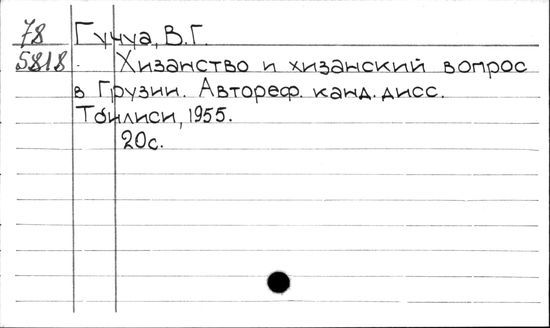 78 Гучуа, В.Г.
5818 Хизанство и хизанский вопрос
в Грузии. Автореф. канд. дисс.
Тбилиси, 1955.
20с.